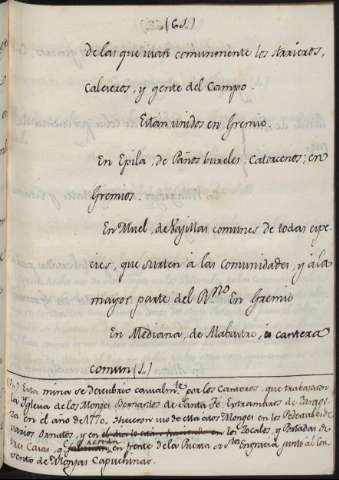 (61.)
de las que usan comunmente los Arrieros,
Caleseros, y gente del Campo.
Estan unidos en Gremio.
En Epila, de Paños bureles, Catorcenos; en
Gremios.
En Muel, de Vajillas comunes de todas espe-
cies, que surten á las comunidades, y á la
mayor parte del R.no en Gremio
En Mediana, de Alabastro, ó cantera
comun (1.)
(1.) Esta mina se descubrio casualm.te por los Canteros, que trabajaron
la Iglesia de los Monges Bernardos de Santa Fé, Extramuros de Zarago-
za en el año de 1770. Hicieron uso de ella estos Monges en los Pedestales de
varios Ornatos, y en los Zocalos, y Portadas de
tres Casas, q.e en frente de la Puerta de S.ta Engracia junto al Con-
vento de Monjas Capuchinas.